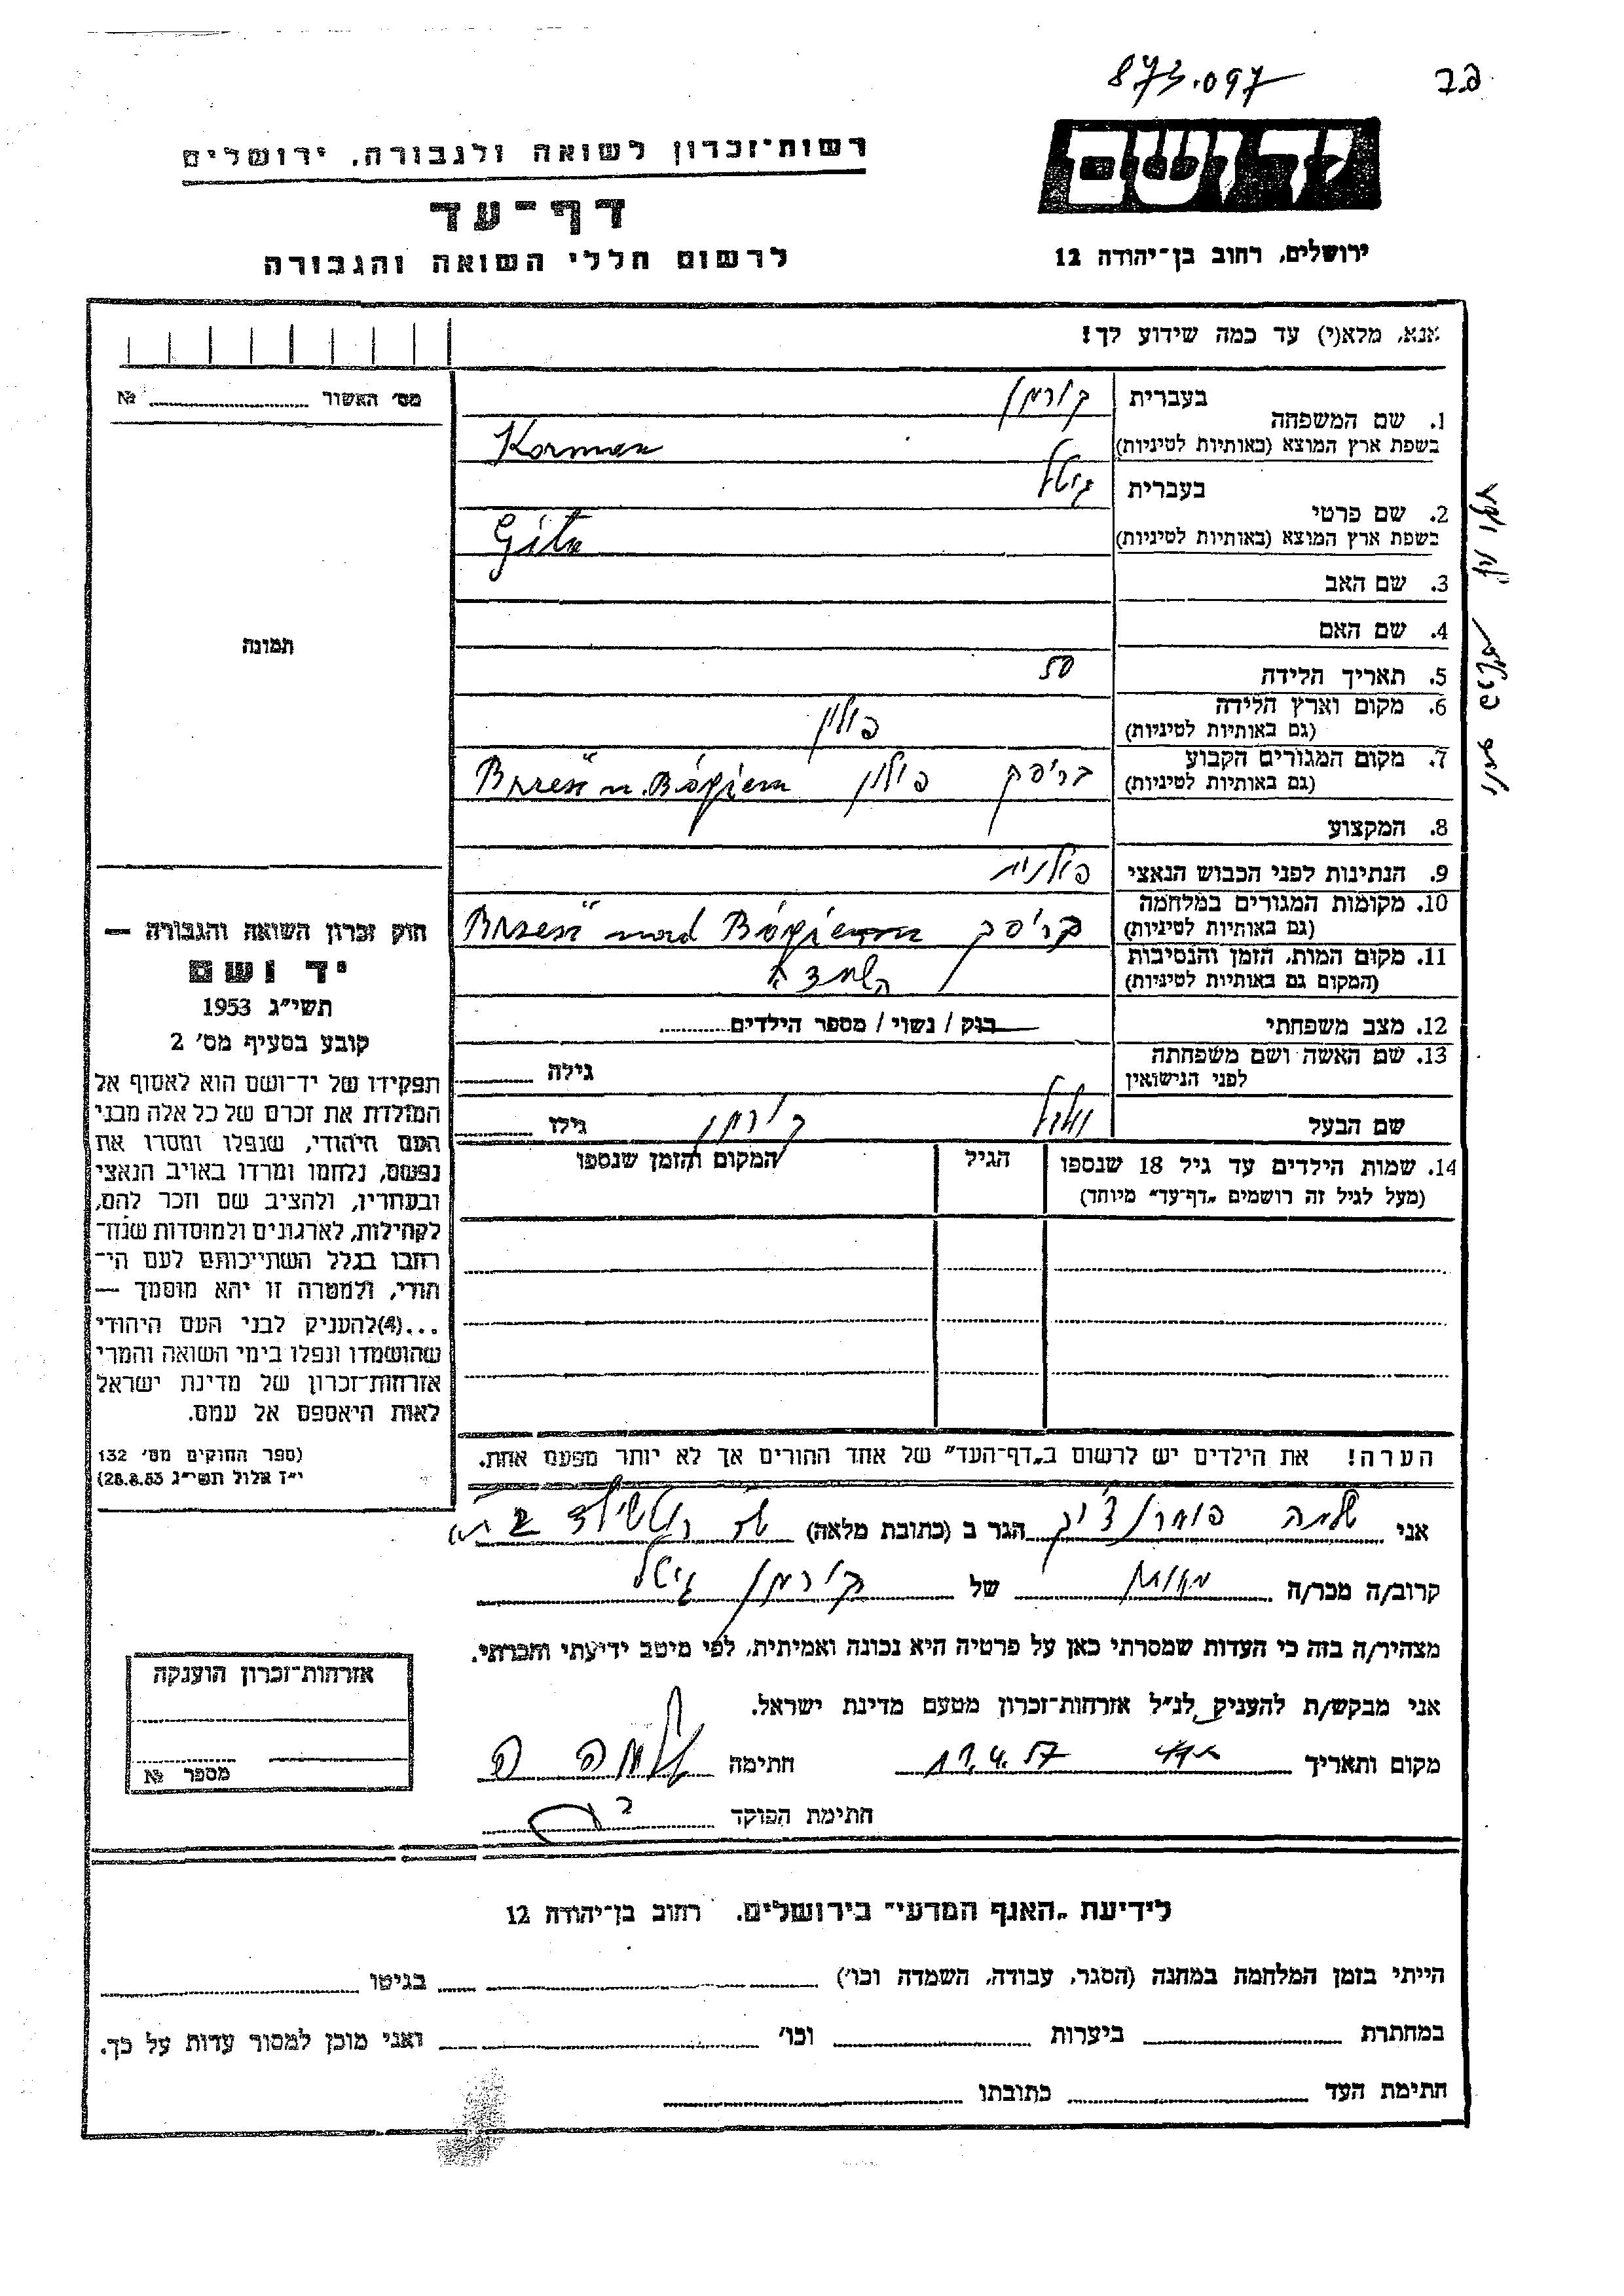 873.097
רשות־זכרון לשואה ולגבורה. ירושלים
יד ושם
דף־עד
ירושלים, רחוב בן־יהודה 12
לרשום חללי השואה והגבורה
אנא, מלא(י) עד כמה שידוע לך!
מס׳ האשור № 
1. שם המשפחה
בעברית קורמן
בשפת ארץ המוצא (באותיות לטיניות) Korman
2. שם פרטי
בעברית גיטל
בשפת ארץ המוצא (באותיות לטיניות) Gita
3. שם האב
4. שם האם
תמונה
5. תאריך הלידה 50
6. מקום וארץ הלידה פולין
(גם באותיות לטיניות)
7. מקום המגורים הקבוע בריסק פולין Brześć n. Bógiem
(גם באותיות לטיניות)
8. המקצוע
9. הנתינות לפני הכבוש הנאצי פולנית
10. מקומות המגורים במלחמה בריסק Brześć nad Bógiem
(גם באותיות לטיניות)
11. מקום המות, הזמן והנסיבות
(המקום גם באותיות לטיניות)
12. מצב משפחתי רווק / נשוי / מספר הילדים
13. שם האשה ושם משפחתה
לפני הנישואין גילה
שם הבעל קורמן גילו
14. שמות הילדים עד גיל 18 שנספו
(מעל לגיל זה רושמים „דף־עד״ מיוחד)
הגיל
המקום והזמן שנספו
חוק זכרון השואה והגבורה —
יד ושם
תשי״ג 1953
קובע בסעיף מס׳ 2
תפקידו של יד־ושם הוא לאסוף אל
המולדת את זכרם של כל אלה מבני
העם היהודי, שנפלו ומסרו את
נפשם, נלחמו ומרדו באויב הנאצי
ובעוזריו, ולהציב שם וזכר להם,
לקהילות, לארגונים ולמוסדות שנח־
רבו בגלל השתייכותם לעם הי־
הודי, ולמטרה זו יהא מוסמך —
...(4)להעניק לבני העם היהודי
שהושמדו ונפלו בימי השואה והמרי
אזרחות־זכרון של מדינת ישראל
לאות היאספם אל עמם.
(ספר החוקים מס׳ 132
י״ז אלול תשי״ג 28.8.53)
הערה! את הילדים יש לרשום ב„דף־העד״ של אחד ההורים אך לא יותר מפעם אחת.
אני שלמה הגר ב (כתובת מלאה)
קרוב/ה מכר/ה של קורמן גיטל
מצהיר/ה בזה כי העדות שמסרתי כאן על פרטיה היא נכונה ואמיתית, לפי מיטב ידיעתי והכרתי.
אני מבקש/ת להעניק לנ״ל אזרחות־זכרון מטעם מדינת ישראל.
מקום ותאריך 17.4.57 חתימה
חתימת הפוקד
אזרחות־זכרון הוענקה
מספר №
לידיעת „האגף המדעי״ בירושלים. רחוב בן־יהודה 12
הייתי בזמן המלחמה במחנה (הסגר, עבודה, השמדה וכו׳) בגיטו
במחתרת ביערות וכו׳ ואני מוכן למסור עדות על כך.
חתימת העד כתובתו